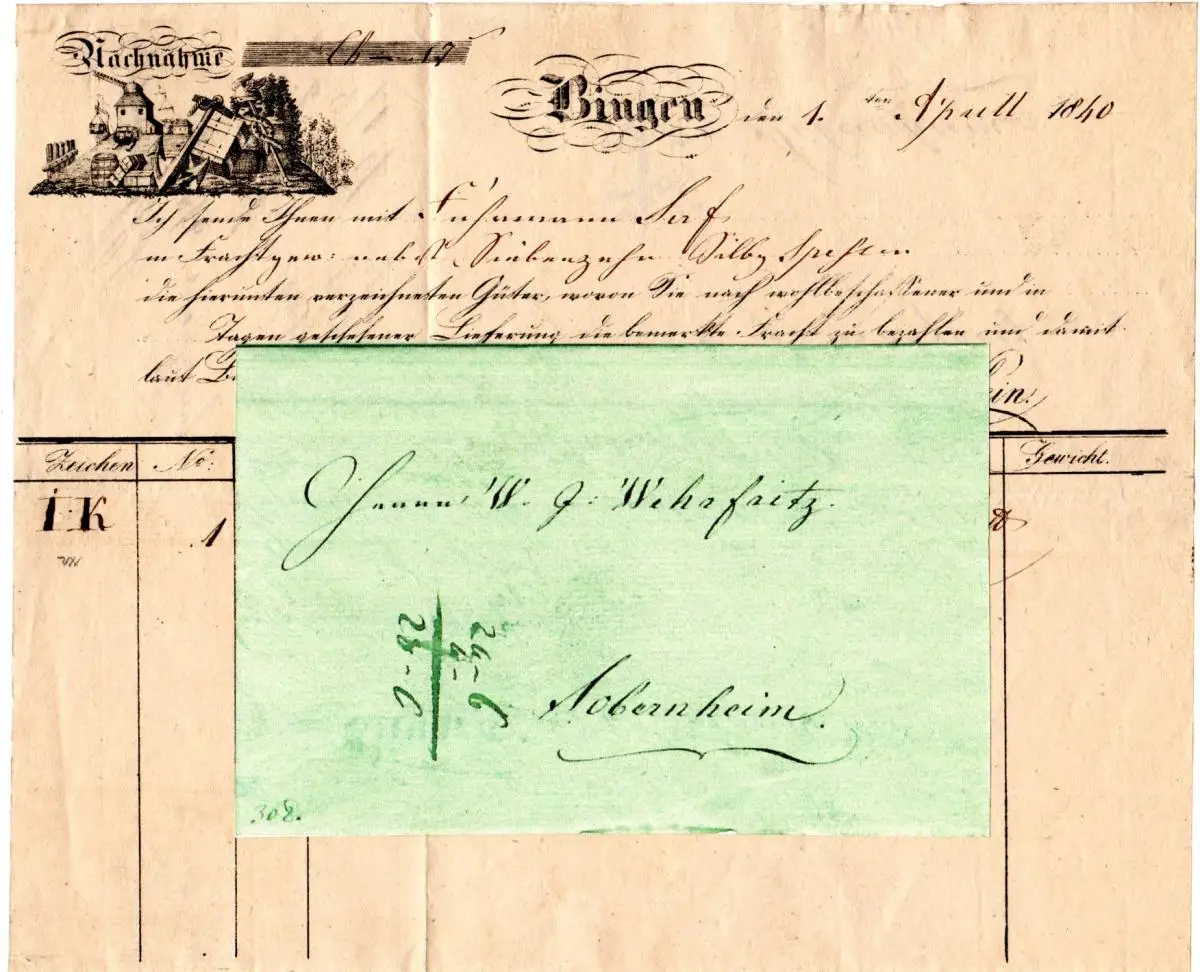 Nachnahme
Bingen den 1. ten Aprill 1840
Ich sende Ihnen mit Fuhrmann Serf
in Frachtgew: nebst Siebenzehn Silbg Spesen
die hierunten verzeichneten Güter, wovon Sie nach wohlbeschaffener und in
Tagen geschehener Lieferung die bemerkte Fracht zu bezahlen und damit
laut
ein.
Zeichen No: Gewicht.
I K 1
Herrn W. J: Wehrfritz.
24 - 6
4 -
28 - 6
Sobernheim.
308.